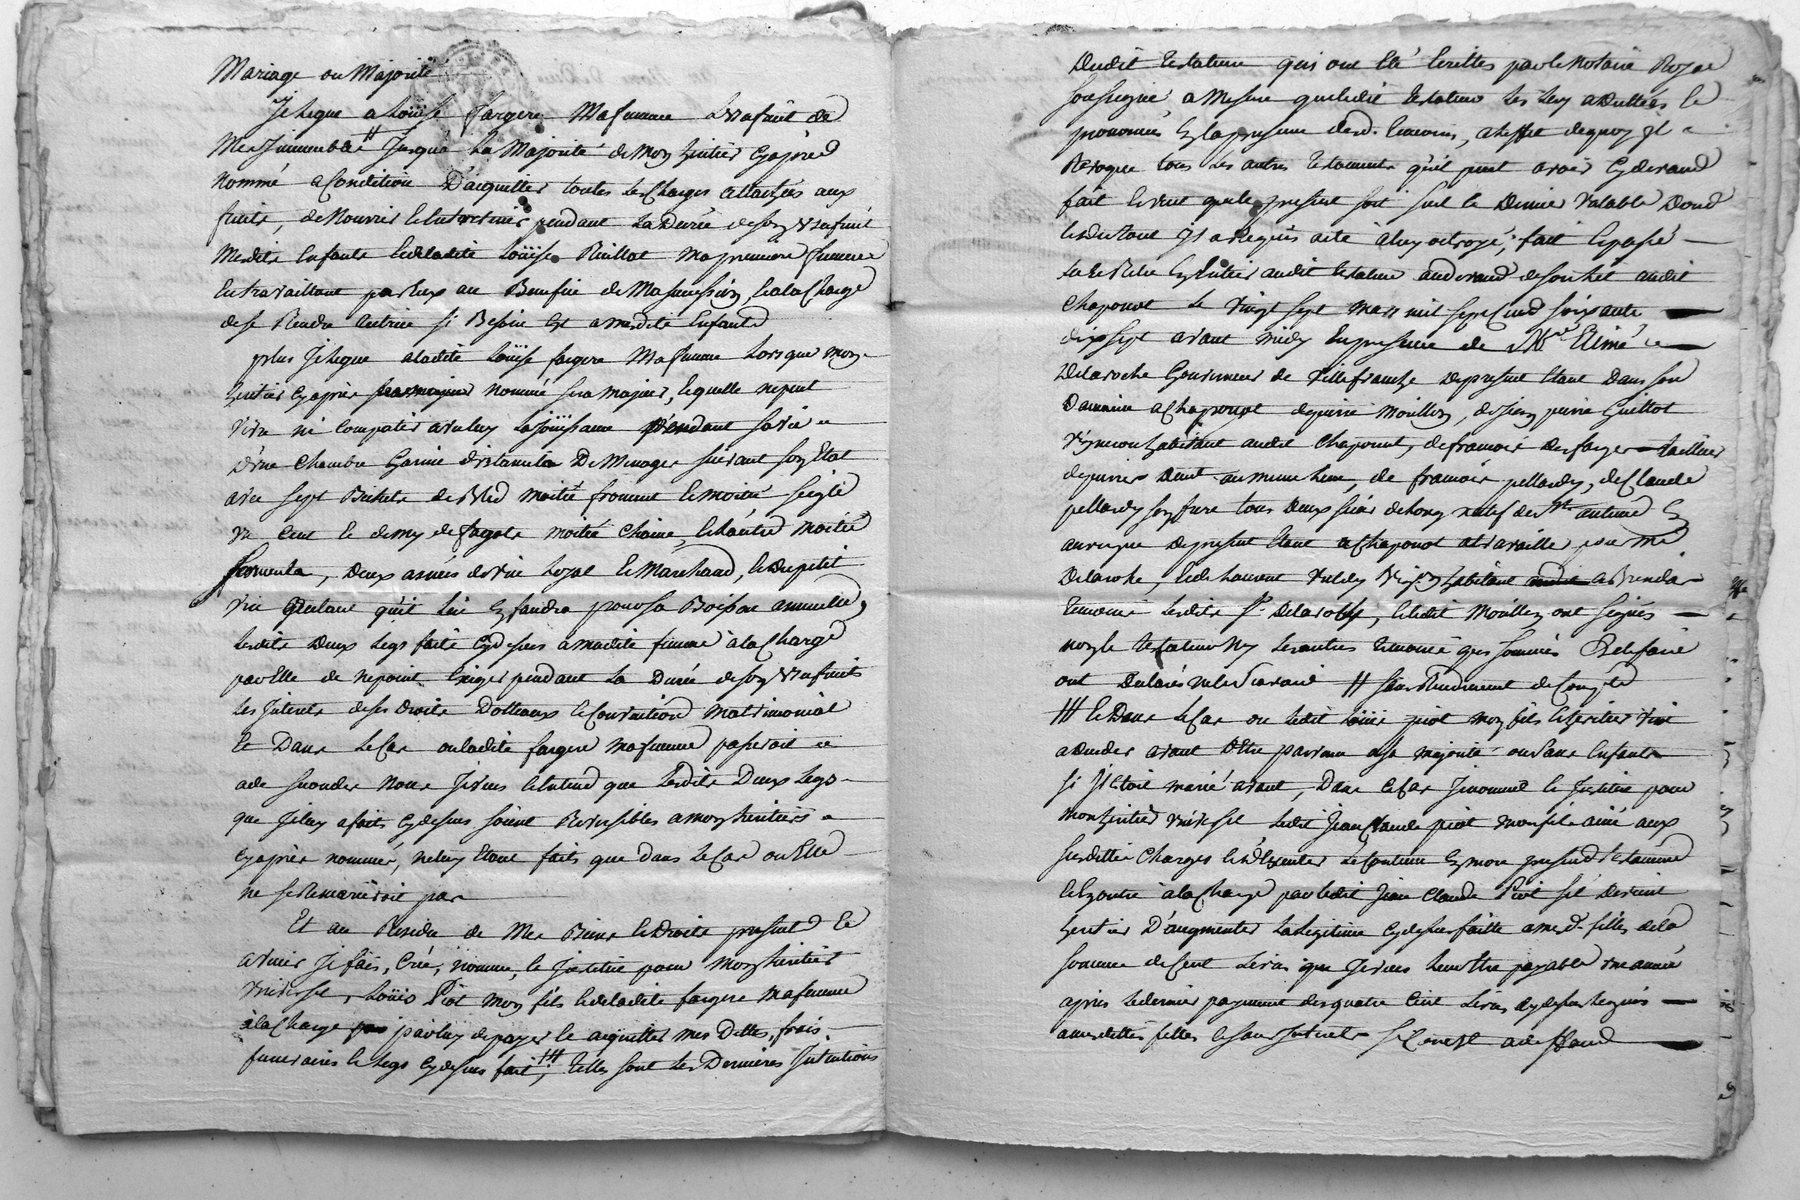 Mariage ou Majorité
Je legue a Loüise fargere Ma femme L'usufruit de
Mes Immeubles # Jusqu'a La Majorité de Mon heritier cy apres
nommé a Condition D'acquitter toutes les Charges attachées aux
fruits, de Nourrir et Entretenir pendant La Durée de son usufruit
Mesdits Enfants et de Ladite Loüise ma premiere femme
En travaillant par Eux au Benefice de Ma succession, et a la Charge
de se Rendre si Besoin Est a mesdits Enfants
plus Je legue a ladite Loüise fargere Ma femme Lorsque mon
heritier cy apres nommé sera majeur, lequelle ne peut
vivre ni Compatir avec luy La Joüissance pendant sa vie
D'une Chambre Garnie d'ustanciles De Menage suivant son Etat
avec sept Bichets de Bled moitié froment et moitié seigle
un Cent et demy de fagots moitié Chaine, et L'autre moitié
, Deux anées de vin Loyal et Marchand, et du petit
vin autant qu'il lui En faudra pour sa Boisson annuelle,
Lesdits Deux legs faits cy dessus a madite femme à la Charge
par Elle de ne point Exiger pendant La Durée de son usufruit
Les Interets de ses Droits Dotteaux et Convention Matrimonial
Et Dans Le Cas ou ladite fargere ma femme passeroit
a de secondes Noces Je veus et Entend que lesdits Deux legs
que Je luy a faits cy dessus soient Reversibles a mon heritiers
cy après nommé, ne luy Etant faits que dans le Cas ou Elle
ne se Remarieroit pas
Et au Residu de Mes Biens et Droits present et
avenir Je fais, Créé, nomme, et Institue pour Mon heritier
universel, Loüis Piot Mon fils et de ladite fargere Ma femme
à la Charge par luy de payer et acquitter mes Dettes, frais
funeraires et legs cy dessus fait ###, telles sont les Dernieres Intentions
Dudit testateur qui ont Eté Ecrittes par le Notaire Royal
soussigné a Mesure que ledit testateur les luy a Dictées et
prononcés En la presence desd. temoins, a l'effet de quoy Il
Revoque tous les autres testaments qu'il peut avoir cy devant
fait et veut que le present soit seul le Dernier valable Dont
et du tout Il a Requis acte à luy octroyé; fait et passé
Lu et Relu En Entier audit testateur au devant de son lit audit
Chaponost le vingt sept mars mil sept Cent soixante
dix sept avant midy En presence de Mre Eimé
Delaroche Gouverneur de villefranche de present Etant Dans son
Domaine a Chaponost de pierre Moüillon, de sieur pierre Guillot
vigneron habitant audit Chaponost, de francois Desfarges tailleur
de pierres Dud. au meme lieu, de francois pellardy, de Claude
pellardy son frere tous Deux de long natif de St antoine En
auvergne de present Etant a Chaponost a travailler pour M.
Delaroche, et de Laurent vigneron habitant a Brindas
temoins lesdits Sr. Delaroche, et ledit Moüillon ont signés
non le testateur Ny les autres temoins qui sommés De le faire
ont Declarés ne le sçavoir # sans Rendrement de Compte
### Et Dans le Cas ou ledit Loüis piot mon fils et heritier
a Deceder avant D'Etre parvenu a sa majorité ou sans Enfants
si Il Etoit marié avant, Dans ce Cas Je nomme et Institue pour
mon heritier universel ledit Jean Claude piot mon fils ainé aux
susdittes Charges et D'Executer le Contenu En mon present testament
et En outre à la Charge par ledit Jean Claude Piot s'il Devient
heritier D'augmenter La legitime cy dessus faitte a mesd. filles de la
somme de Cent livres que Je veus leur Etre payable une année
après le dernier payement des quatre Cent livres cy dessus leguées
a mesdittes filles et sans Interets